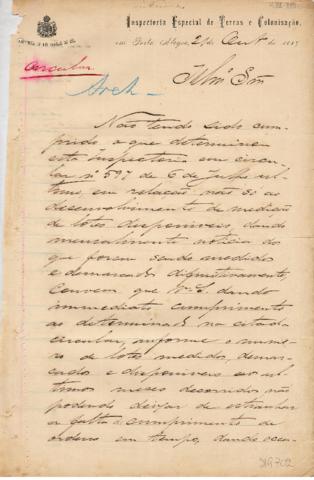 Inspectoria Especial de Terras e Colonisação,
em Porto Alegre, 21 de de 188
Circular
Arch
Illmo Sr
Não tendo sido cum-
prido o que determinou
esta inspectoria em circu-
lar nº 597 de 6 de Julho ul-
timo, em relação, não só ao
desenvolvimento de medição
de lotes disponiveis, dando
mensalmente noticia do
que forem sendo medidos
e demarcados definitivamente,
Convem que V. S. dando
immediato cumprimento
ao determinado na citada
circular, informe o nume-
ro de lotes medidos, demar-
cados e disponiveis nos ul-
timos meses decorridos, não
podendo deixar de estranhar
a falta de cumprimento de
ordens em tempo, dando occa-